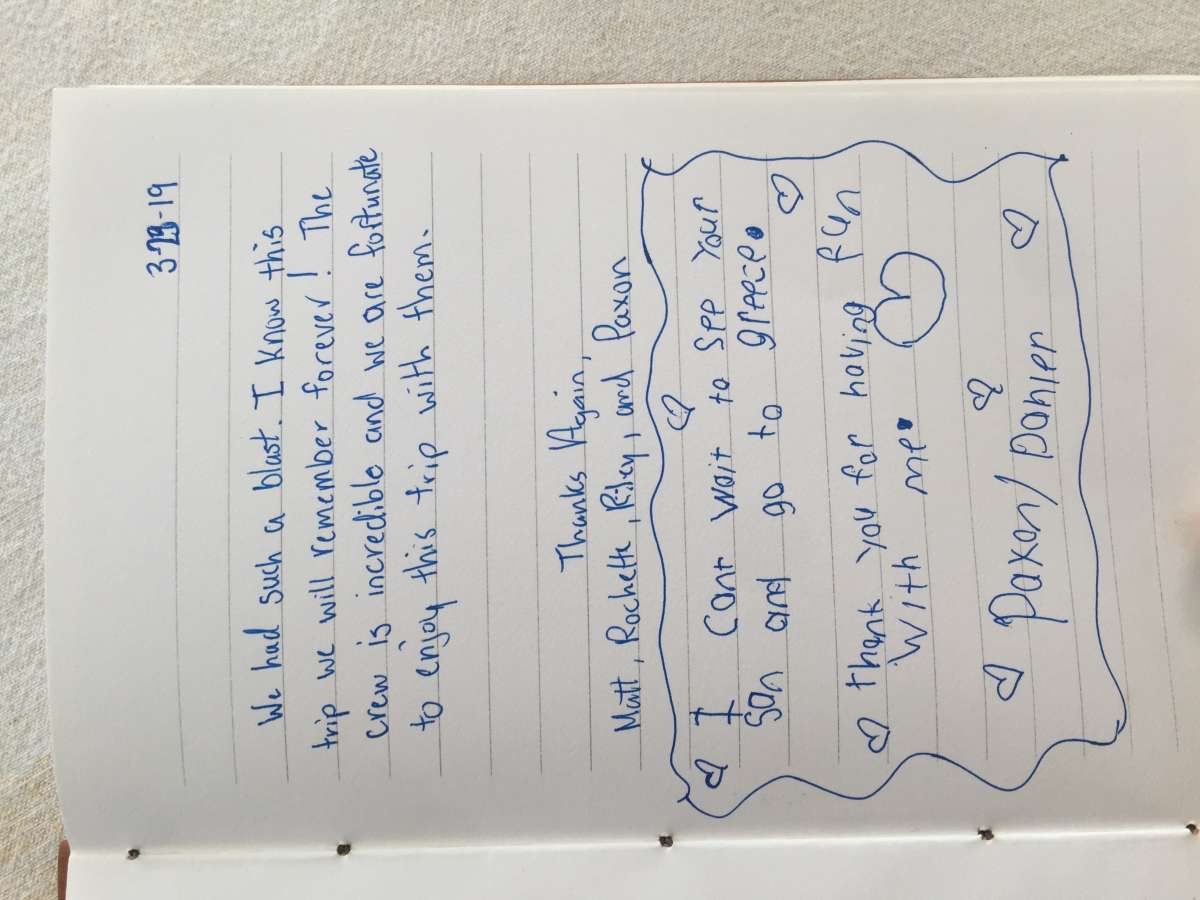 3-29-19
We had such a blast. I know this
trip we will remember forever! The
crew is incredible and we are fortunate
to enjoy this trip with them.
Thanks Again,
Matt, Rochelle, Riley, and Paxon
I Cant wait to see your
san and go to greece.
thank you for having fun
With me.
Paxon/